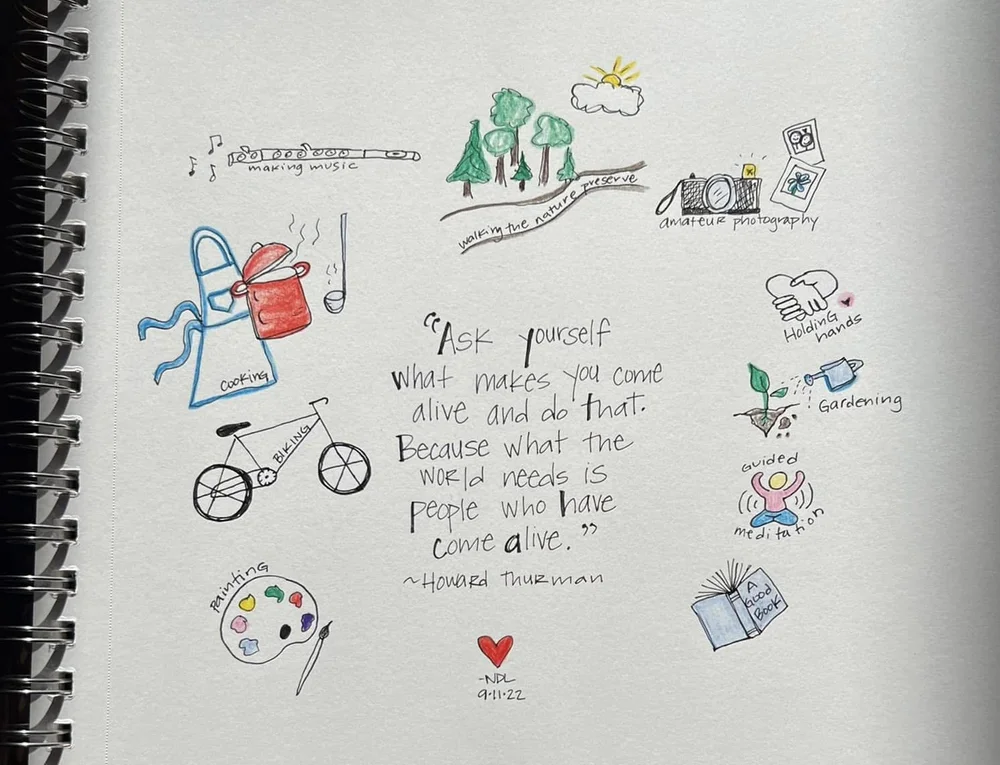 making music
walking the nature preserve
amateur photography
Cooking
Holding
hands
Gardening
BIKING
"Ask yourself
what makes you come
alive and do that.
Because what the
world needs is
people who have
come alive."
~Howard Thurman
GUIDED
meditation
Painting
A
Good
Book
-NDL
9.11.22